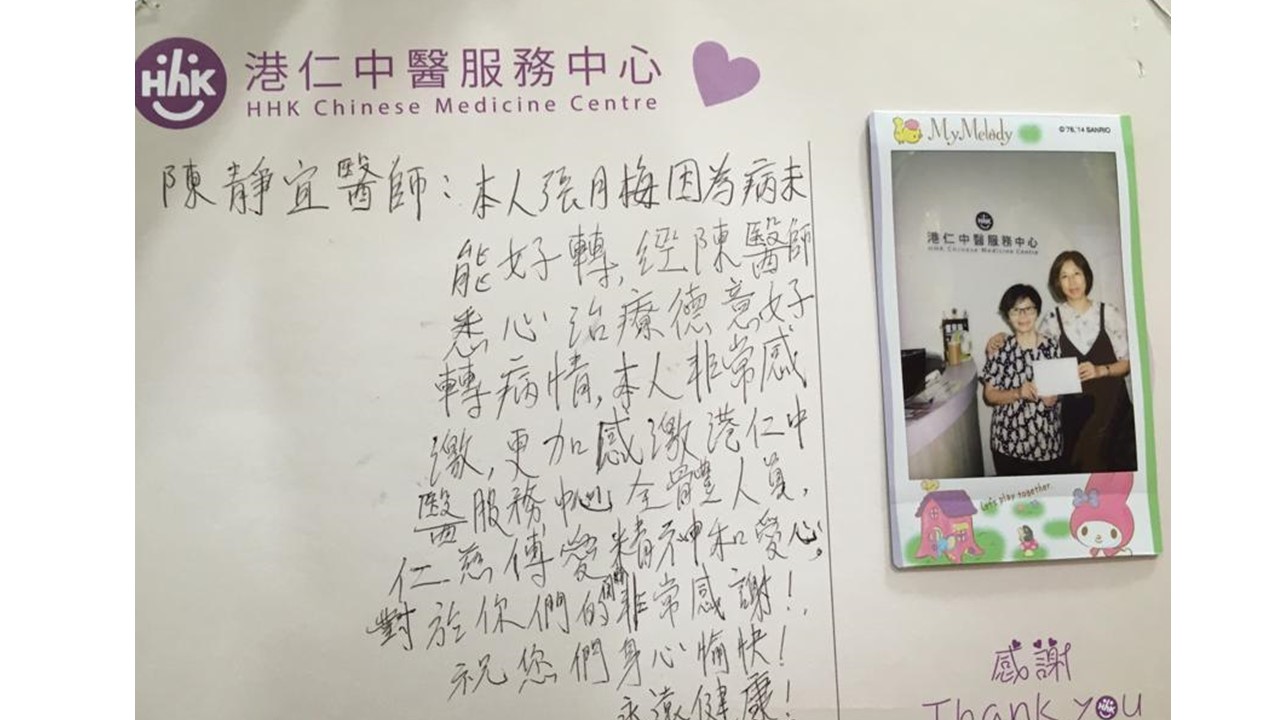 HHK
港仁中醫服務中心
HHK Chinese Medicine Centre
陳靜宜醫師：本人張月梅因為病未
能好轉,經陳醫師
悉心治療德意好
轉病情,本人非常感
激,更加感激港仁中
醫服務中心全體人員,
仁慈傅愛精神和愛心,
對於你們的非常感謝!
祝您們身心愉快!
永遠健康!
My Melody
©'76,'14 SANRIO
HHK
港仁中醫服務中心
HHK Chinese Medicine Centre
Let's play together.
感謝
Thank you
HHK